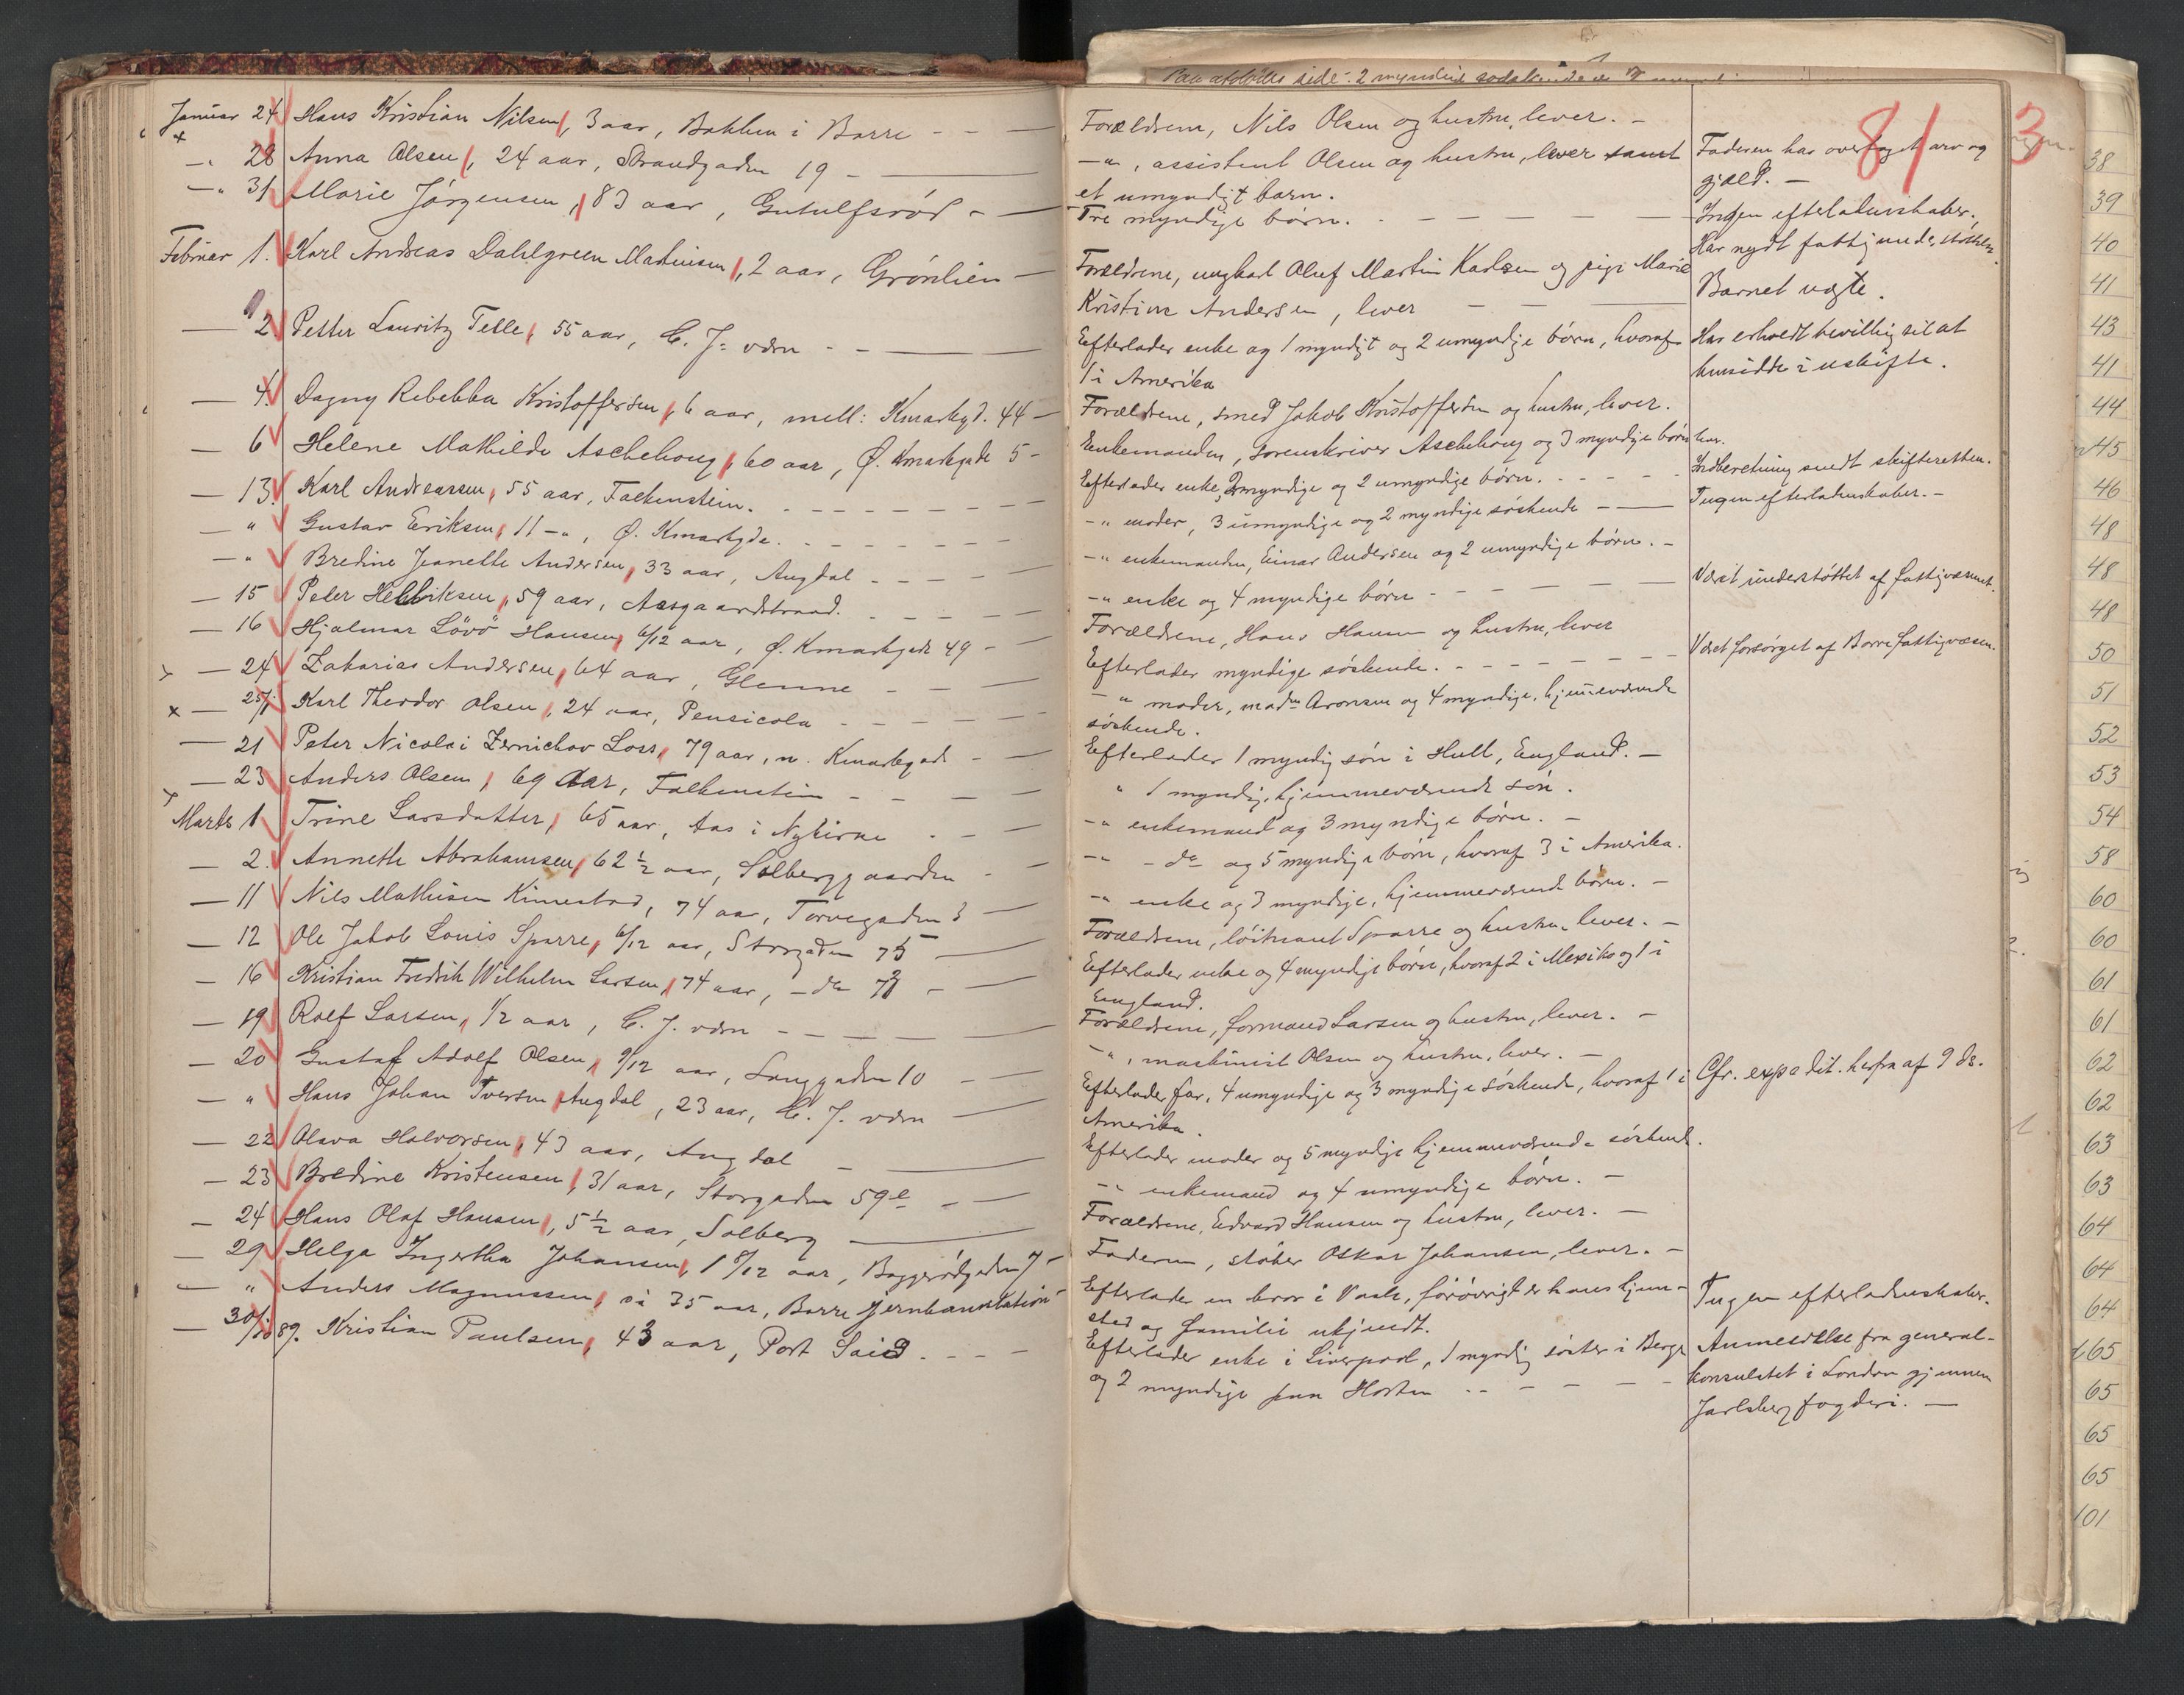 Januar 24 Hans Kristian Nilsen, 3 aar, Bakken i Borre - -
" 28 Anna Olsen, 24 aar, Strandgaden 19 -
" 31 Marie Jörgensen, 83 aar, Gutulfsröd -
Februar 1. Karl Andreas Dahlgreen Mathisen, 2 aar, Grönlien -
— 2 Petter Lauritz Telle, 55 aar, C. J. værn - -
— 4. Dagny Rebekka Kristoffersen, 6 aar, mell: Kmarkgd. 44 -
— 6 Helene Mathilde Aschehoug, 60 aar, Ø. Kmarkgade 5 -
— 13. Karl Andreassen, 55 aar, Falkenstein.
— " Gustav Eriksen, 11 -", Ø. Kmarkgde.
— " Bredine Jeanette Andersen, 33 aar, Augdal
— 15 Peter Henriksen, 59 aar, Aasgaardstrand.
— 16 Hjalmar Lövö Hansen, 6/12 aar, Ø. Kmarkgade 49 -
— 24 Zakarias Andersen, 64 aar, Glenne - -
x — 25/1 Karl Theodor Olsen, 24 aar, Pensicola
— 21 Peter Nicolai Zernichov Loss, 79 aar, n. Kmarkgade -
— 23 Anders Olsen, 69 aar, Falkenstein - -
Marts 1 Trine Larsdatter, 65 aar, Aas i Nykirke - -
— 2. Annette Abrahamsen, 62 ½ aar, Solberggaarden -
— 11 Nils Mathisen Kimestad, 74 aar, Torvegaden 3
— 12 Ole Jakob Louis Sparre, 6/12 aar, Storgaden 75
— 16 Kristian Fredrik Wilhelm Larsen, 74 aar, - do 73 -
— 19 Rolf Larsen, 1/2 aar, C. J. værn -
— 20 Gustaf Adolf Olsen, 9/12 aar, Langgaden 10 -
— " Hans Johan Iversen Augdal, 23 aar, C. J. værn
— 22 Olava Halvorsen, 43 aar, Augdal -
— 23 Bredine Kristensen, 31 aar, Storgaden 59e -
— 24 Hans Olaf Hansen, 5 ½ aar, Solberg
— 29 Helga Ingertha Johansen, 1 8/12 aar, Baggerödgaden 7 -
— " Anders Magnussen, ca 35 aar, Borre jernbanestation -
— 30/10 89. Kristian Paulsen, 43 aar, Port Said. - - -
Forældrene, Nils Olsen og hustru, lever. -
-", assistent Olsen og hustru, lever samt
et umyndigt barn.
Tre myndige börn. - - -
Forældrene, ungkarl Oluf Martin Karlsen og pige Marie
Kristine Andersen, lever
Efterlader enke og 1 myndigt og 2 umyndige börn, hvoraf
1 i Amerika
Forældrene, smed Jakob Kristoffersen og hustru, lever.
Enkemanden, sorenskriver Aschehoug og 3 myndige börn lever.
Efterlader enke, 2 myndige og 2 umyndige börn.
-" moder, 3 umyndige og 2 myndige söskende
-" enkemanden, Einar Andersen og 2 umyndige börn. -
-" enke og 4 myndige börn
Forældrene, Hans Hansen og hustru, lever
Efterlader myndige söskende.
-" moder, madm Aronsen og 4 myndige, hjemmeværende
söskende.
Efterlader 1 myndig sön i Hull, England. -
" 1 myndig, hjemmeværende sön.
-" enkemand og 3 myndige börn. -
-" - do og 5 myndige börn, hvoraf 3 i Amerika.
-" enke og 3 myndige, hjemmeværende börn. -
Forældrene, löitnant Sparre og hustru, lever. -
Efterlader enke og 4 myndige börn, hvoraf 2 i Mexiko og 1 i
England.
Forældrene, formand Larsen og hustru, lever. -
-", maskinist Olsen og hustru, lever. -
Efterlader far, 4 umyndige og 3 myndige söskende, hvoraf 1 i
Amerika.
Efterlader moder og 5 myndige hjemmeværende söskende.
-" enkemand og 4 umyndige börn. -
Forældrene, Edvard Hansen og hustru, lever. -
Faderen, stöber Oskar Johansen, lever. -
Efterlader en bror i Vaale, forövrigt er hans hjem-
sted og familie ukjendt.
Efterlader enke i Liverpool, 1 myndig söster i Berge
og 2 myndige paa Horten
81
3
Faderen har overtaget arv og
gjæld. -
Ingen efterladenskaber.
Har nydt fattigunderstöttelse.
Barnet uægte.
Har erholdt bevilling til at
hensidde i uskifte.
Indberetning sendt skifteretten.
Ingen efterladenskaber. -
Været understöttet af fattigvæsenet.
Været forsörget af Borre fattigvæsen.
Cfr. expedit. herfra af 9 ds.
Ingen efterladenskaber.
Anmeldelse fra general-
konsulatet i London gjennem
Jarlsberg fogderi. -
38
39
40
41
43
41
44
45
46
48
48
48
50
51
52
53
54
58
60
60
61
61
62
62
63
63
64
64
64
65
65
65
65
101